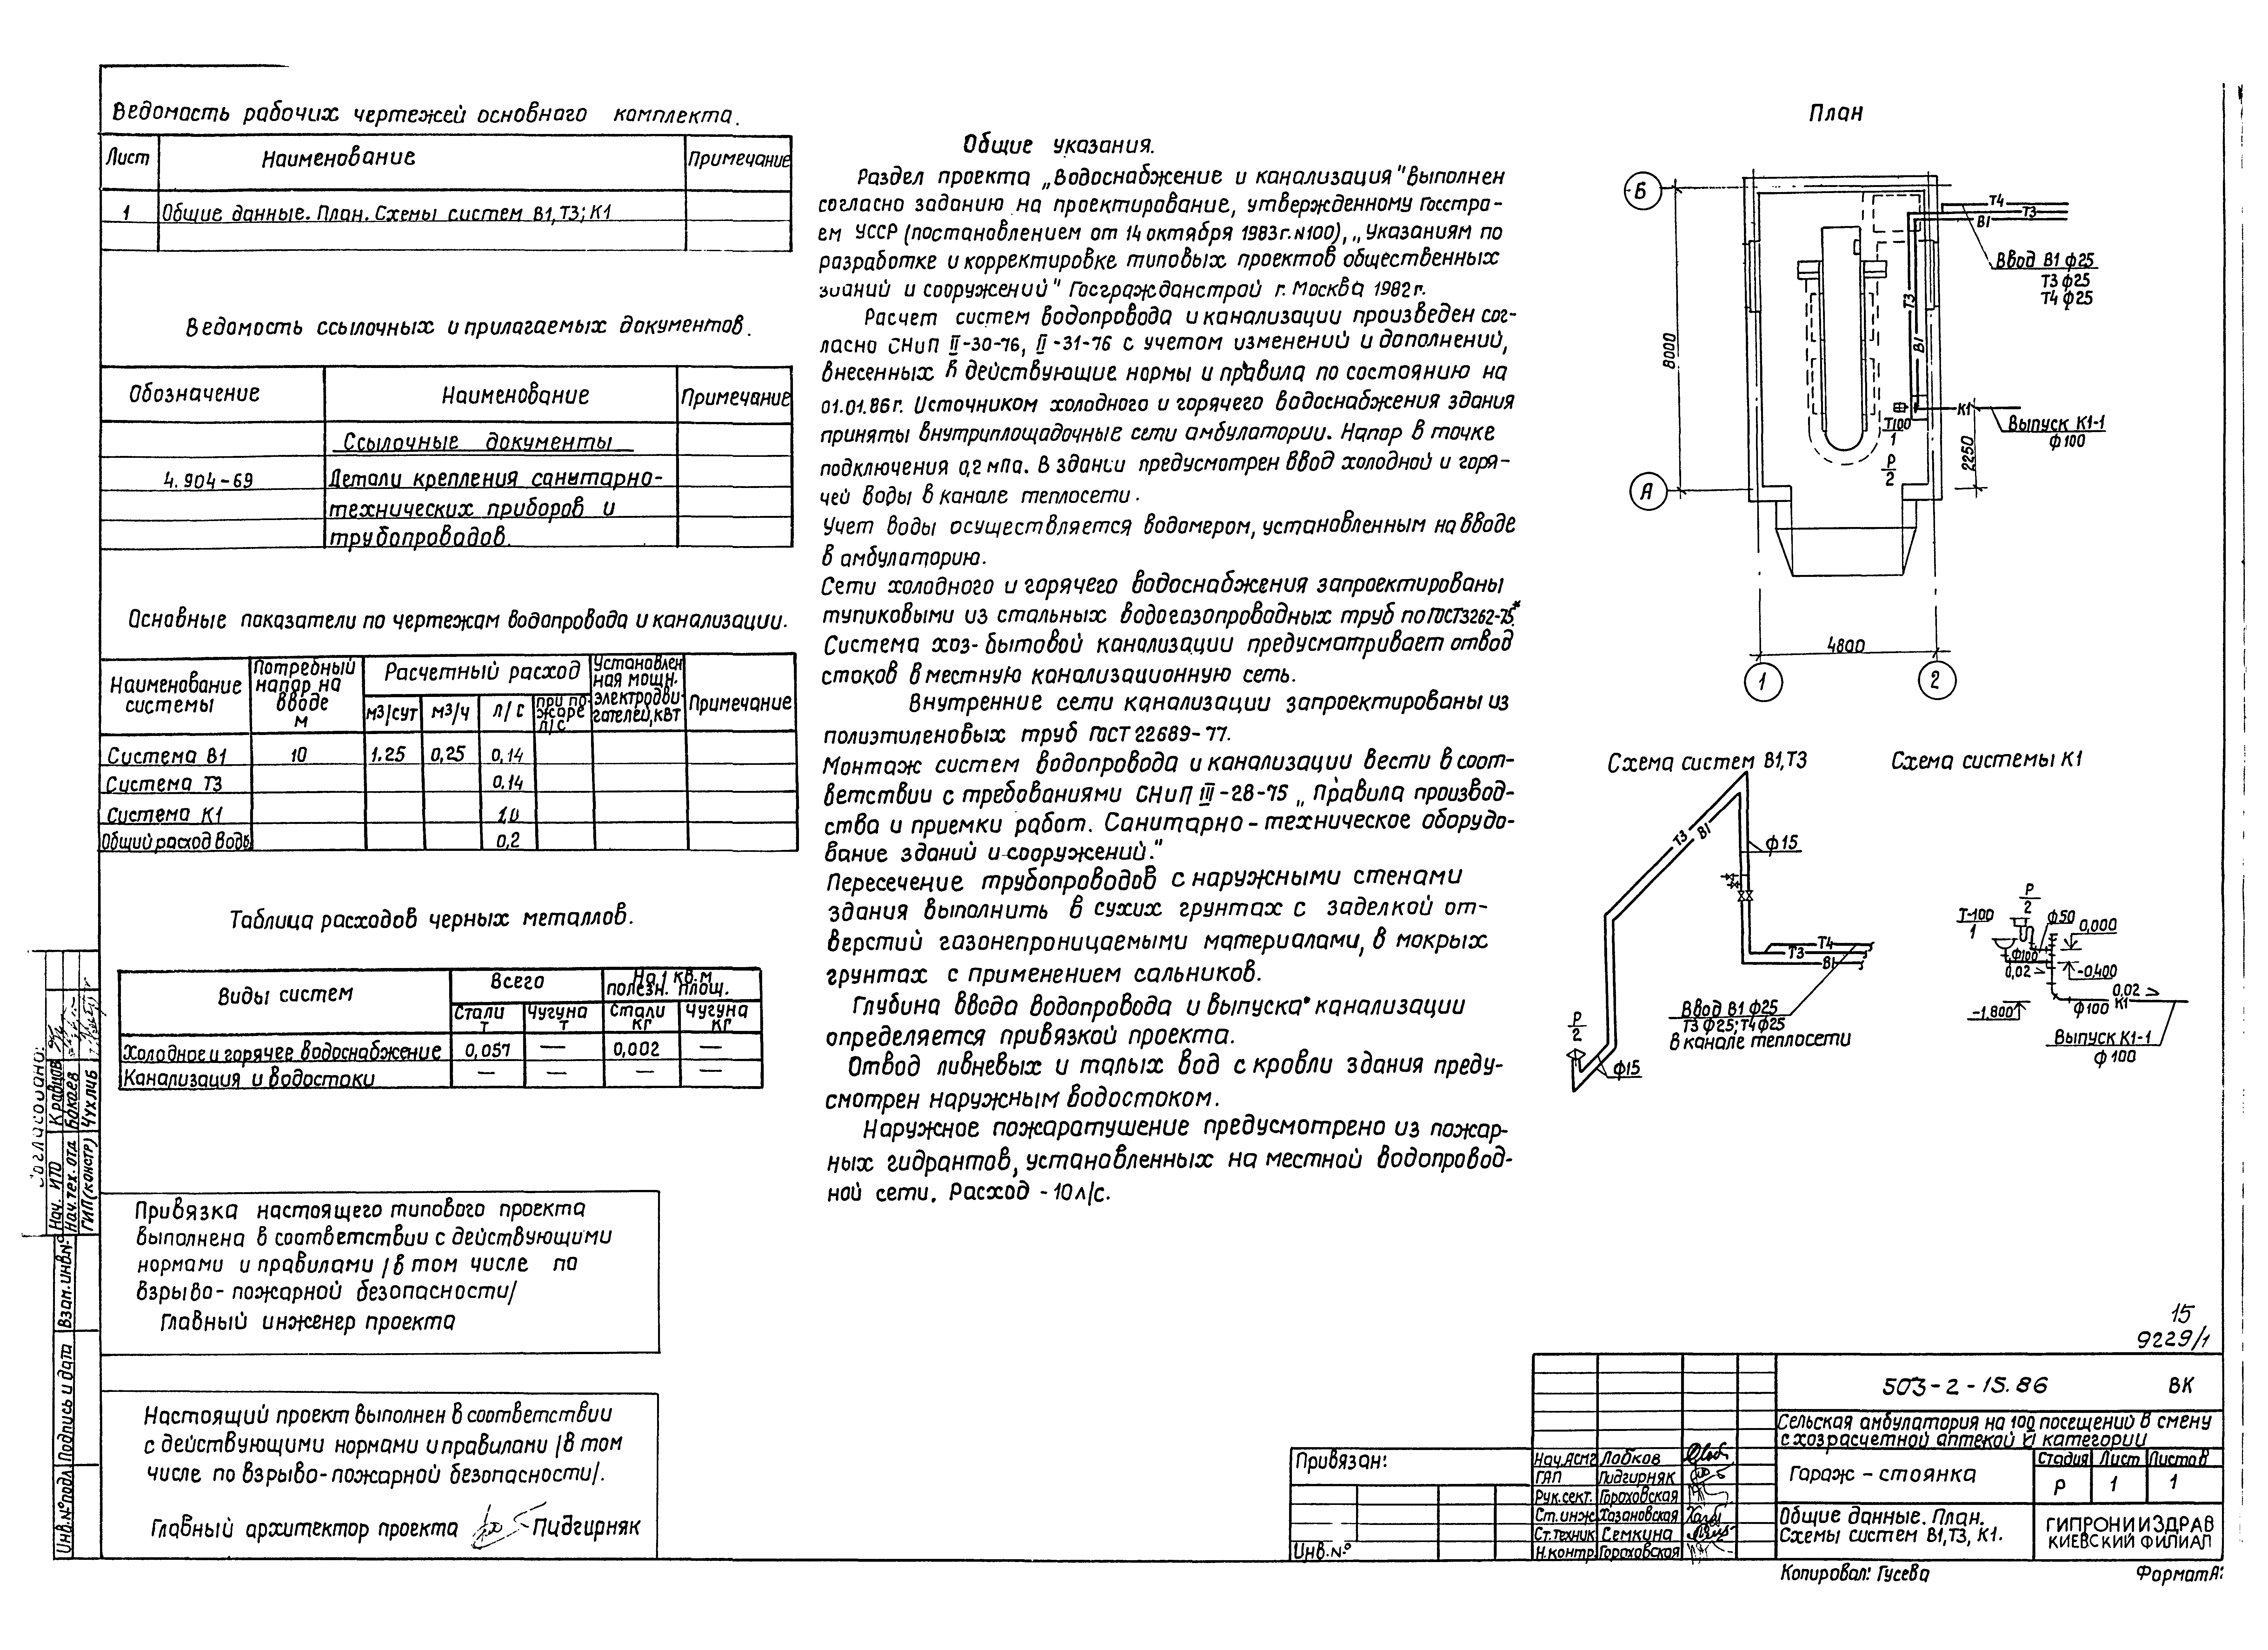 Ведомость рабочих чертежей основного комплекта.
Лист Наименование Примечание
1 Общие данные. План. Схемы систем В1,Т3; К1
Ведомость ссылочных и прилагаемых документов.
Обозначение Наименование Примечание
Ссылочные документы
4.904-69 Детали крепления санитарно-
технических приборов и
трубопроводов.
Основные показатели по чертежам водопровода и канализации.
Наименование системы Потребный напор на вводе м Расчетный расход Установлен ная мощн. электродви- гателей, кВт Примечание
м3/сут м3/ч л/с при по- жаре л/с
Система В1 10 1.25 0,25 0,14
Система Т3 0,14
Система К1 1,0
Общий расход воды 0,2
Таблица расходов черных металлов.
Виды систем Всего На 1 кв.м полезн. площ.
Стали т Чугуна т Стали кг Чугуна кг
Холодное и горячее водоснабжение 0,057 — 0,002 —
Канализация и водостоки — — — —
Привязка настоящего типового проекта
выполнена в соответствии с действующими
нормами и правилами /в том числе по
взрыво-пожарной безопасности/
Главный инженер проекта
Настоящий проект выполнен в соответствии
с действующими нормами и правилами /в том
числе по взрыво-пожарной безопасности/.
Главный архитектор проекта Пидгирняк
Согласовано:
Нач. ИТО Кравцов
Нач. тех. отд Бокаев
ГИП (констр)
Взам. инв.№
Подпись и дата
Инв.№ подл
Общие указания.
Раздел проекта „Водоснабжение и канализация" выполнен
согласно заданию на проектирование, утвержденному Госстро-
ем УССР (постановлением от 14 октября 1983г. №100), „Указаниям по
разработке и корректировке типовых проектов общественных
зданий и сооружений" Госгражданстрой г. Москва 1982г.
Расчет систем водопровода и канализации произведен сог-
ласно СНиП II-30-76, II-31-76 с учетом изменений и дополнений,
внесенных в действующие нормы и правила по состоянию на
01.01.86г. Источником холодного и горячего водоснабжения здания
приняты внутриплощадочные сети амбулатории. Напор в точке
подключения 0,2 мПа. В здании предусмотрен ввод холодной и горя-
чей воды в канале теплосети.
Учет воды осуществляется водомером, установленным на вводе
в амбулаторию.
Сети холодного и горячего водоснабжения запроектированы
тупиковыми из стальных водогазопроводных труб по ГОСТ3262-75*.
Система хоз-бытовой канализации предусматривает отвод
стоков в местную канализационную сеть.
Внутренние сети канализации запроектированы из
полиэтиленовых труб ГОСТ 22689-77.
Монтаж систем водопровода и канализации вести в соот-
ветствии с требованиями СНиП III-28-75 „Правила производ-
ства и приемки работ. Санитарно-техническое оборудо-
вание зданий и сооружений."
Пересечение трубопроводов с наружными стенами
здания выполнить в сухих грунтах с заделкой от-
верстий газонепроницаемыми материалами, в мокрых
грунтах с применением сальников.
Глубина ввода водопровода и выпуска канализации
определяется привязкой проекта.
Отвод ливневых и талых вод с кровли здания преду-
смотрен наружным водостоком.
Наружное пожаротушение предусмотрено из пожар-
ных гидрантов, установленных на местной водопровод-
ной сети. Расход - 10 л/с.
План
Б
Т4
Т3
В1
Ввод В1 ф25
Т3 ф25
Т4 ф25
Т3
В1
8000
К1
Т100
1
Выпуск К1-1
ф100
Р
2
2250
А
4800
1 2
Схема систем В1,Т3
Т3
В1
ф15
Т4
Т3
В1
Ввод В1 ф25
Т3 ф25; Т4 ф25
в канале теплосети
Р
2
ф15
Схема системы К1
Р
2
Т-100
1
ф50
0,000
ф100
0,02
-0,400
0,02
ф100 К1
-1,800
Выпуск К1-1
ф100
15
9229/1
503-2-15.86 ВК
Сельская амбулатория на 100 посещений в смену
с хозрасчетной аптекой VI категории
Гараж-стоянка
Стадия Лист Листов
Р 1 1
Общие данные. План.
Схемы систем В1,Т3, К1.
ГИПРОНИИЗДРАВ
КИЕВСКИЙ ФИЛИАЛ
Привязан:
Инв.№
Нач.АСМ2 Лобков
ГАП Пидгирняк
Рук.сект. Гороховская
Ст.инж Хазановская
Ст.техник Семкина
Н.контр Гороховская
Копировал: Гусева
Формат А2